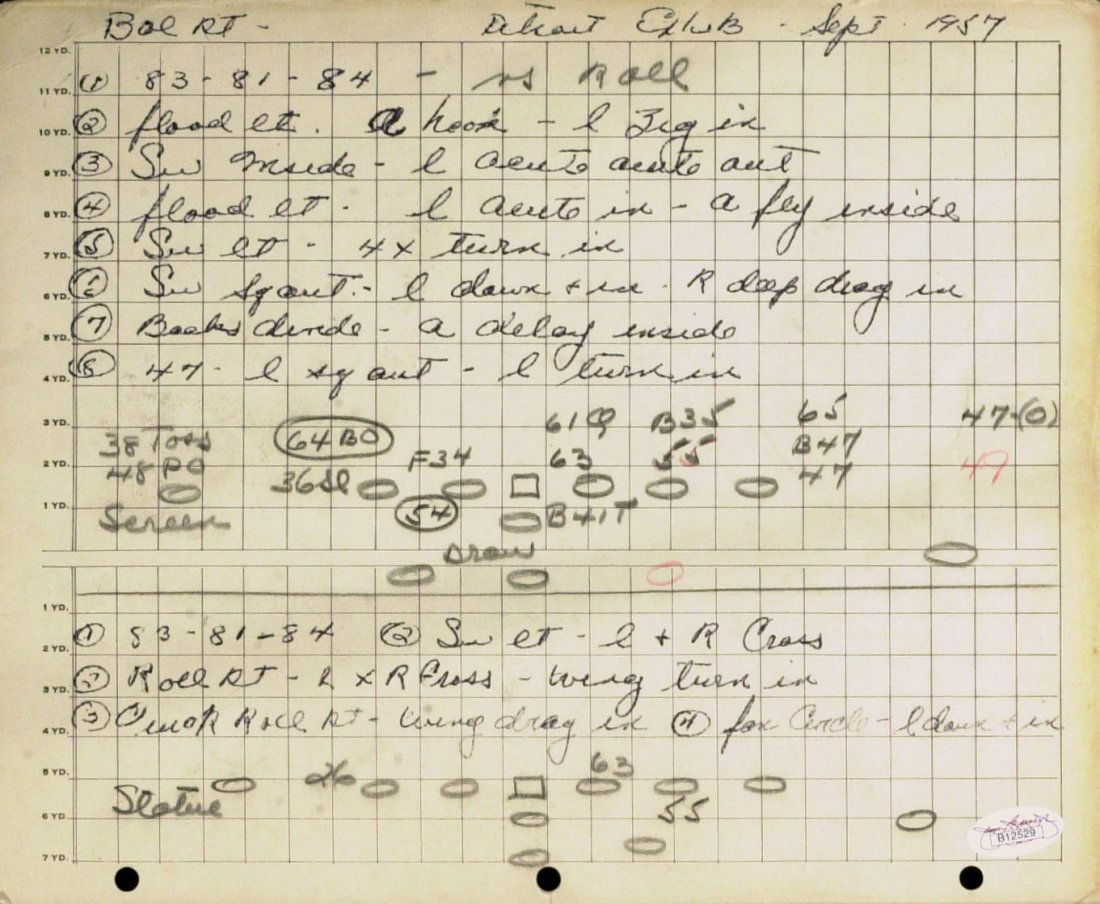 Bal Rt - Detroit Exhib - Sept. 1957
12 YD.
① 83 - 81 - 84 - vs Roll
11 YD.
② flood lt. a hook - l Zig in
10 YD.
③ Sw Inside - l acute acute out
9 YD.
④ flood lt - l acute in - a fly inside
8 YD.
⑤ Sw lt - 4x turn in
7 YD.
⑥ Sw sq out - l down + in - R deep drag in
6 YD.
⑦ Backs divide - a delay inside
5 YD.
⑧ 47 - l sq out - l turn in
4 YD.
3 YD.
61Q B35 65 47-(0)
38 Toss 64 BO F34 63 55 B47 49
2 YD.
48 PO 36Sl 47
1 YD.
Screen 54 B41T
Draw
1 YD.
① 83 - 81 - 84 ② Sw lt - l + R Cross
2 YD.
② Roll Rt - l x R Cross - wing turn in
3 YD.
③ Roll Rt - wing drag in ④ fox Circle - l down + in
4 YD.
5 YD.
26 63
Statue 55
6 YD.
7 YD.
B12529